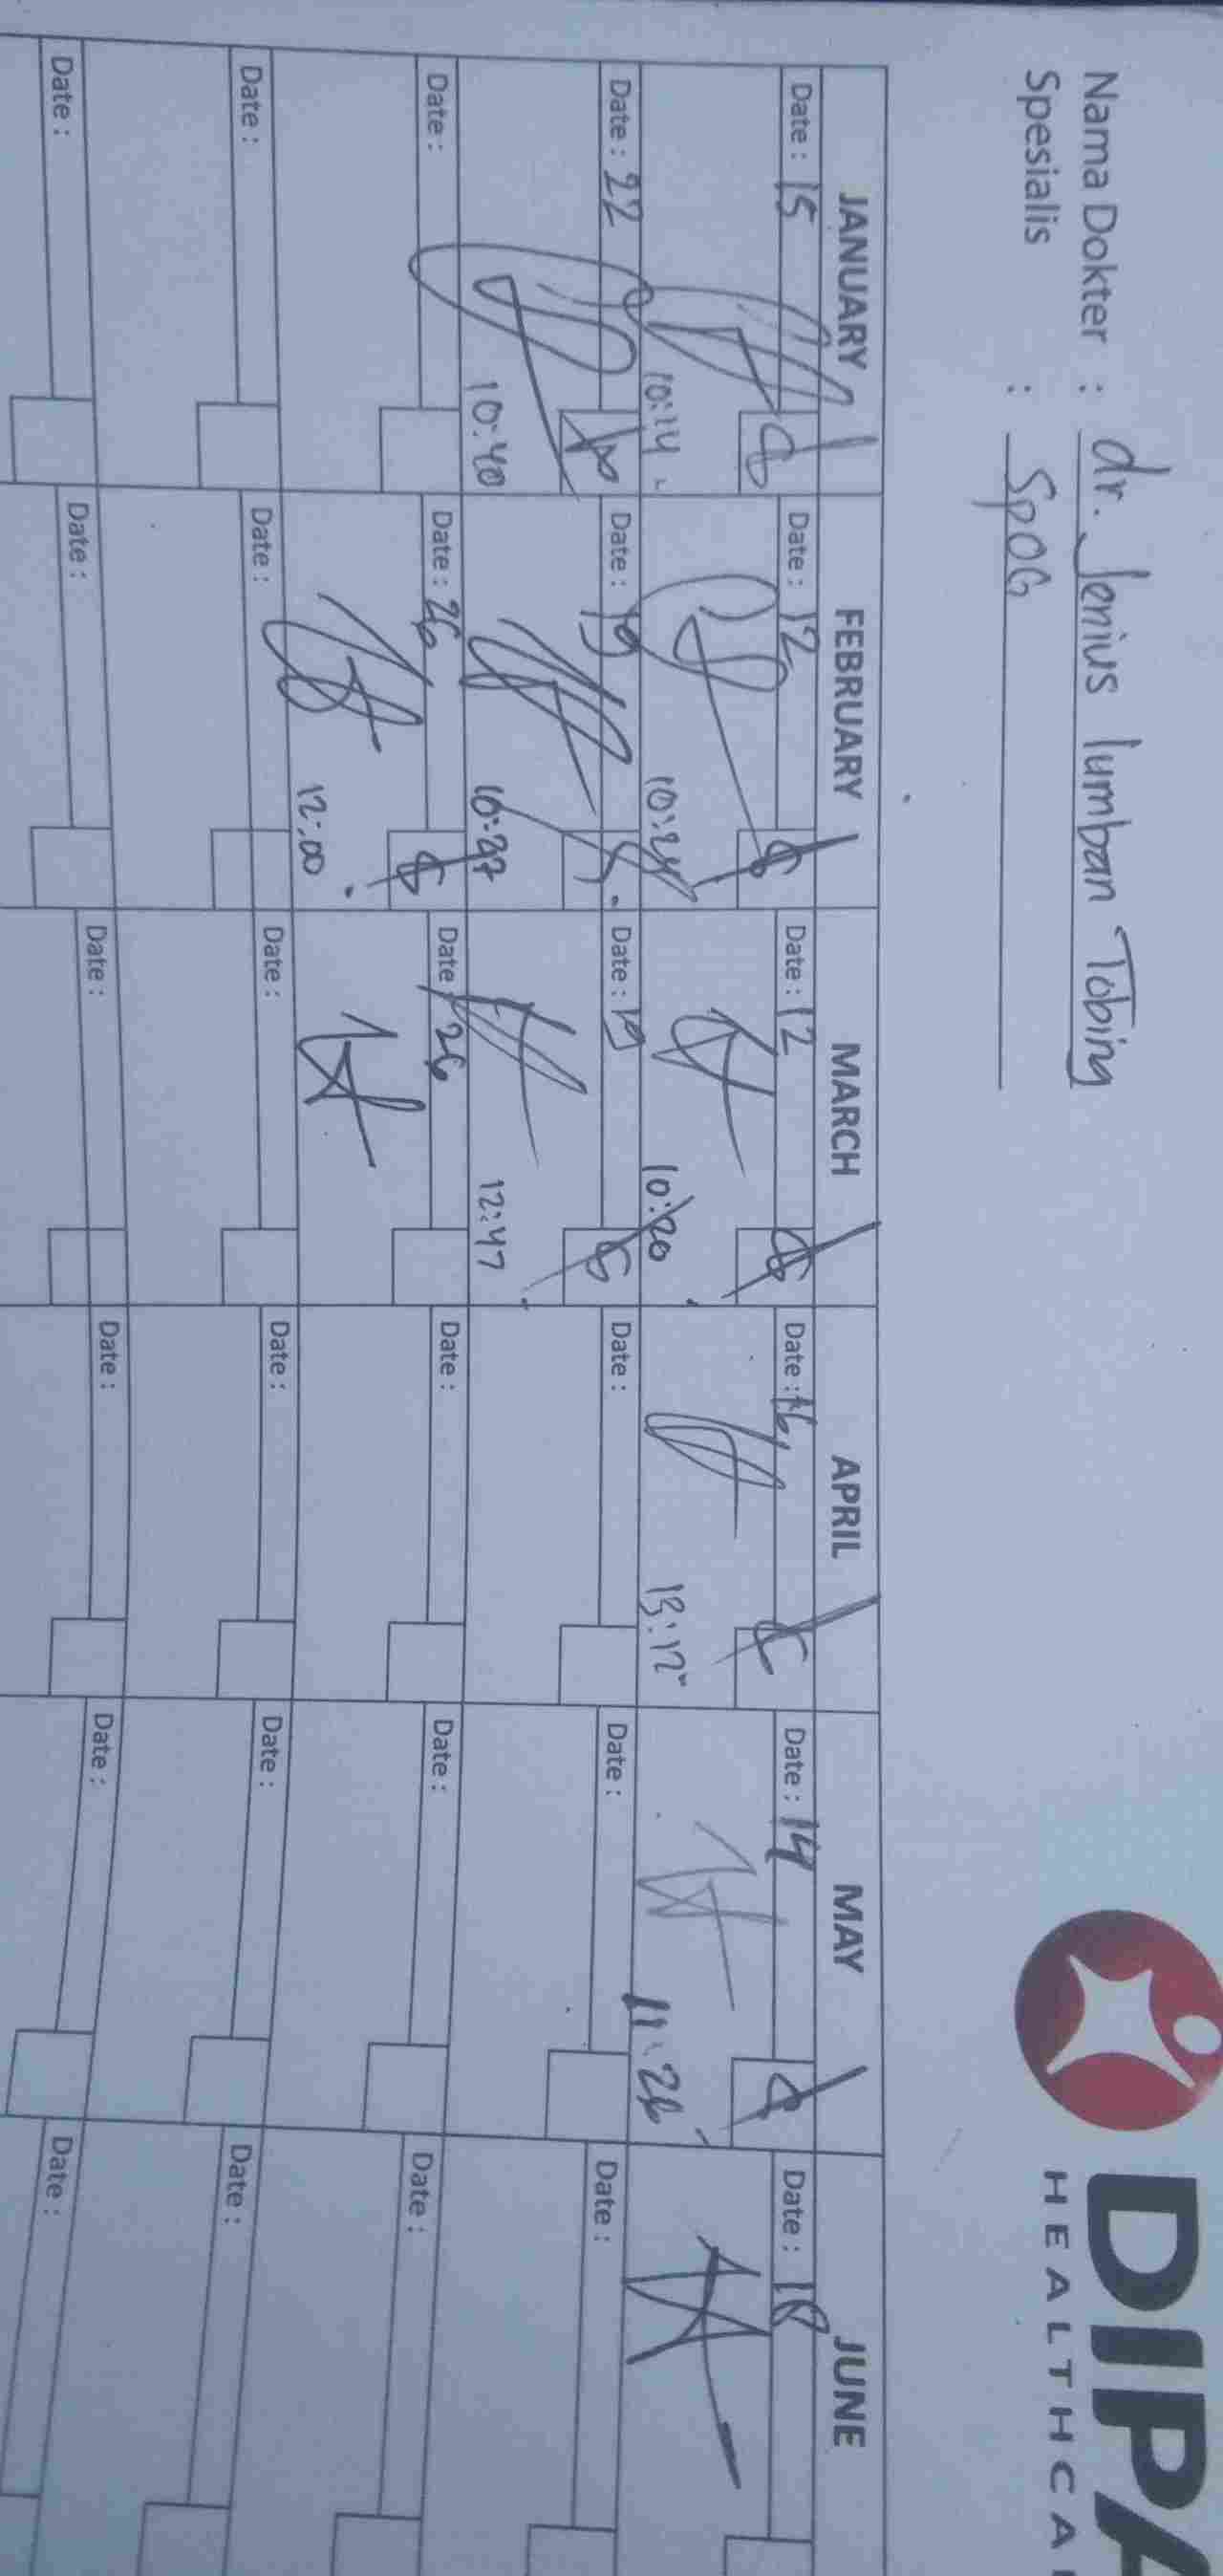 Nama Dokter : dr. Jenius lumban Tobing
Spesialis : SpOG
DIPA
HEALTHCA
JANUARY FEBRUARY MARCH APRIL MAY JUNE
Date : 15 Date : 12 Date : 12 Date : 16 Date : 14 Date : 18
10:14 10:24 10:20 13:12 11:26
Date : 22 Date : 19 Date : 19 Date : Date : Date :
10:40 12:47
Date : Date : 26 Date : 26 Date : Date : Date :
12:00
Date : Date : Date : Date : Date : Date :
Date : Date : Date : Date : Date : Date :